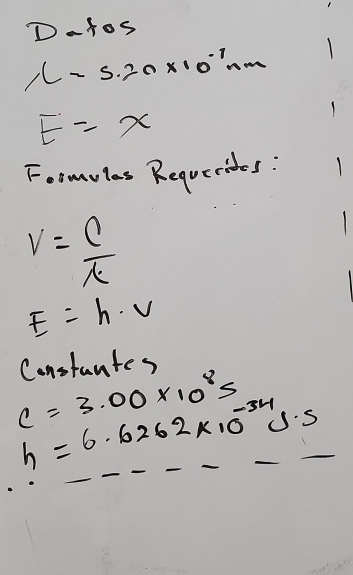 Datos
λ = 5.20 x 10⁻⁷ nm
E = x
Formulas Requeridas:
V = C
λ
E = h · v
Constantes
C = 3.00 x 10⁸ s
h = 6.6262 x 10⁻³⁴ J·s